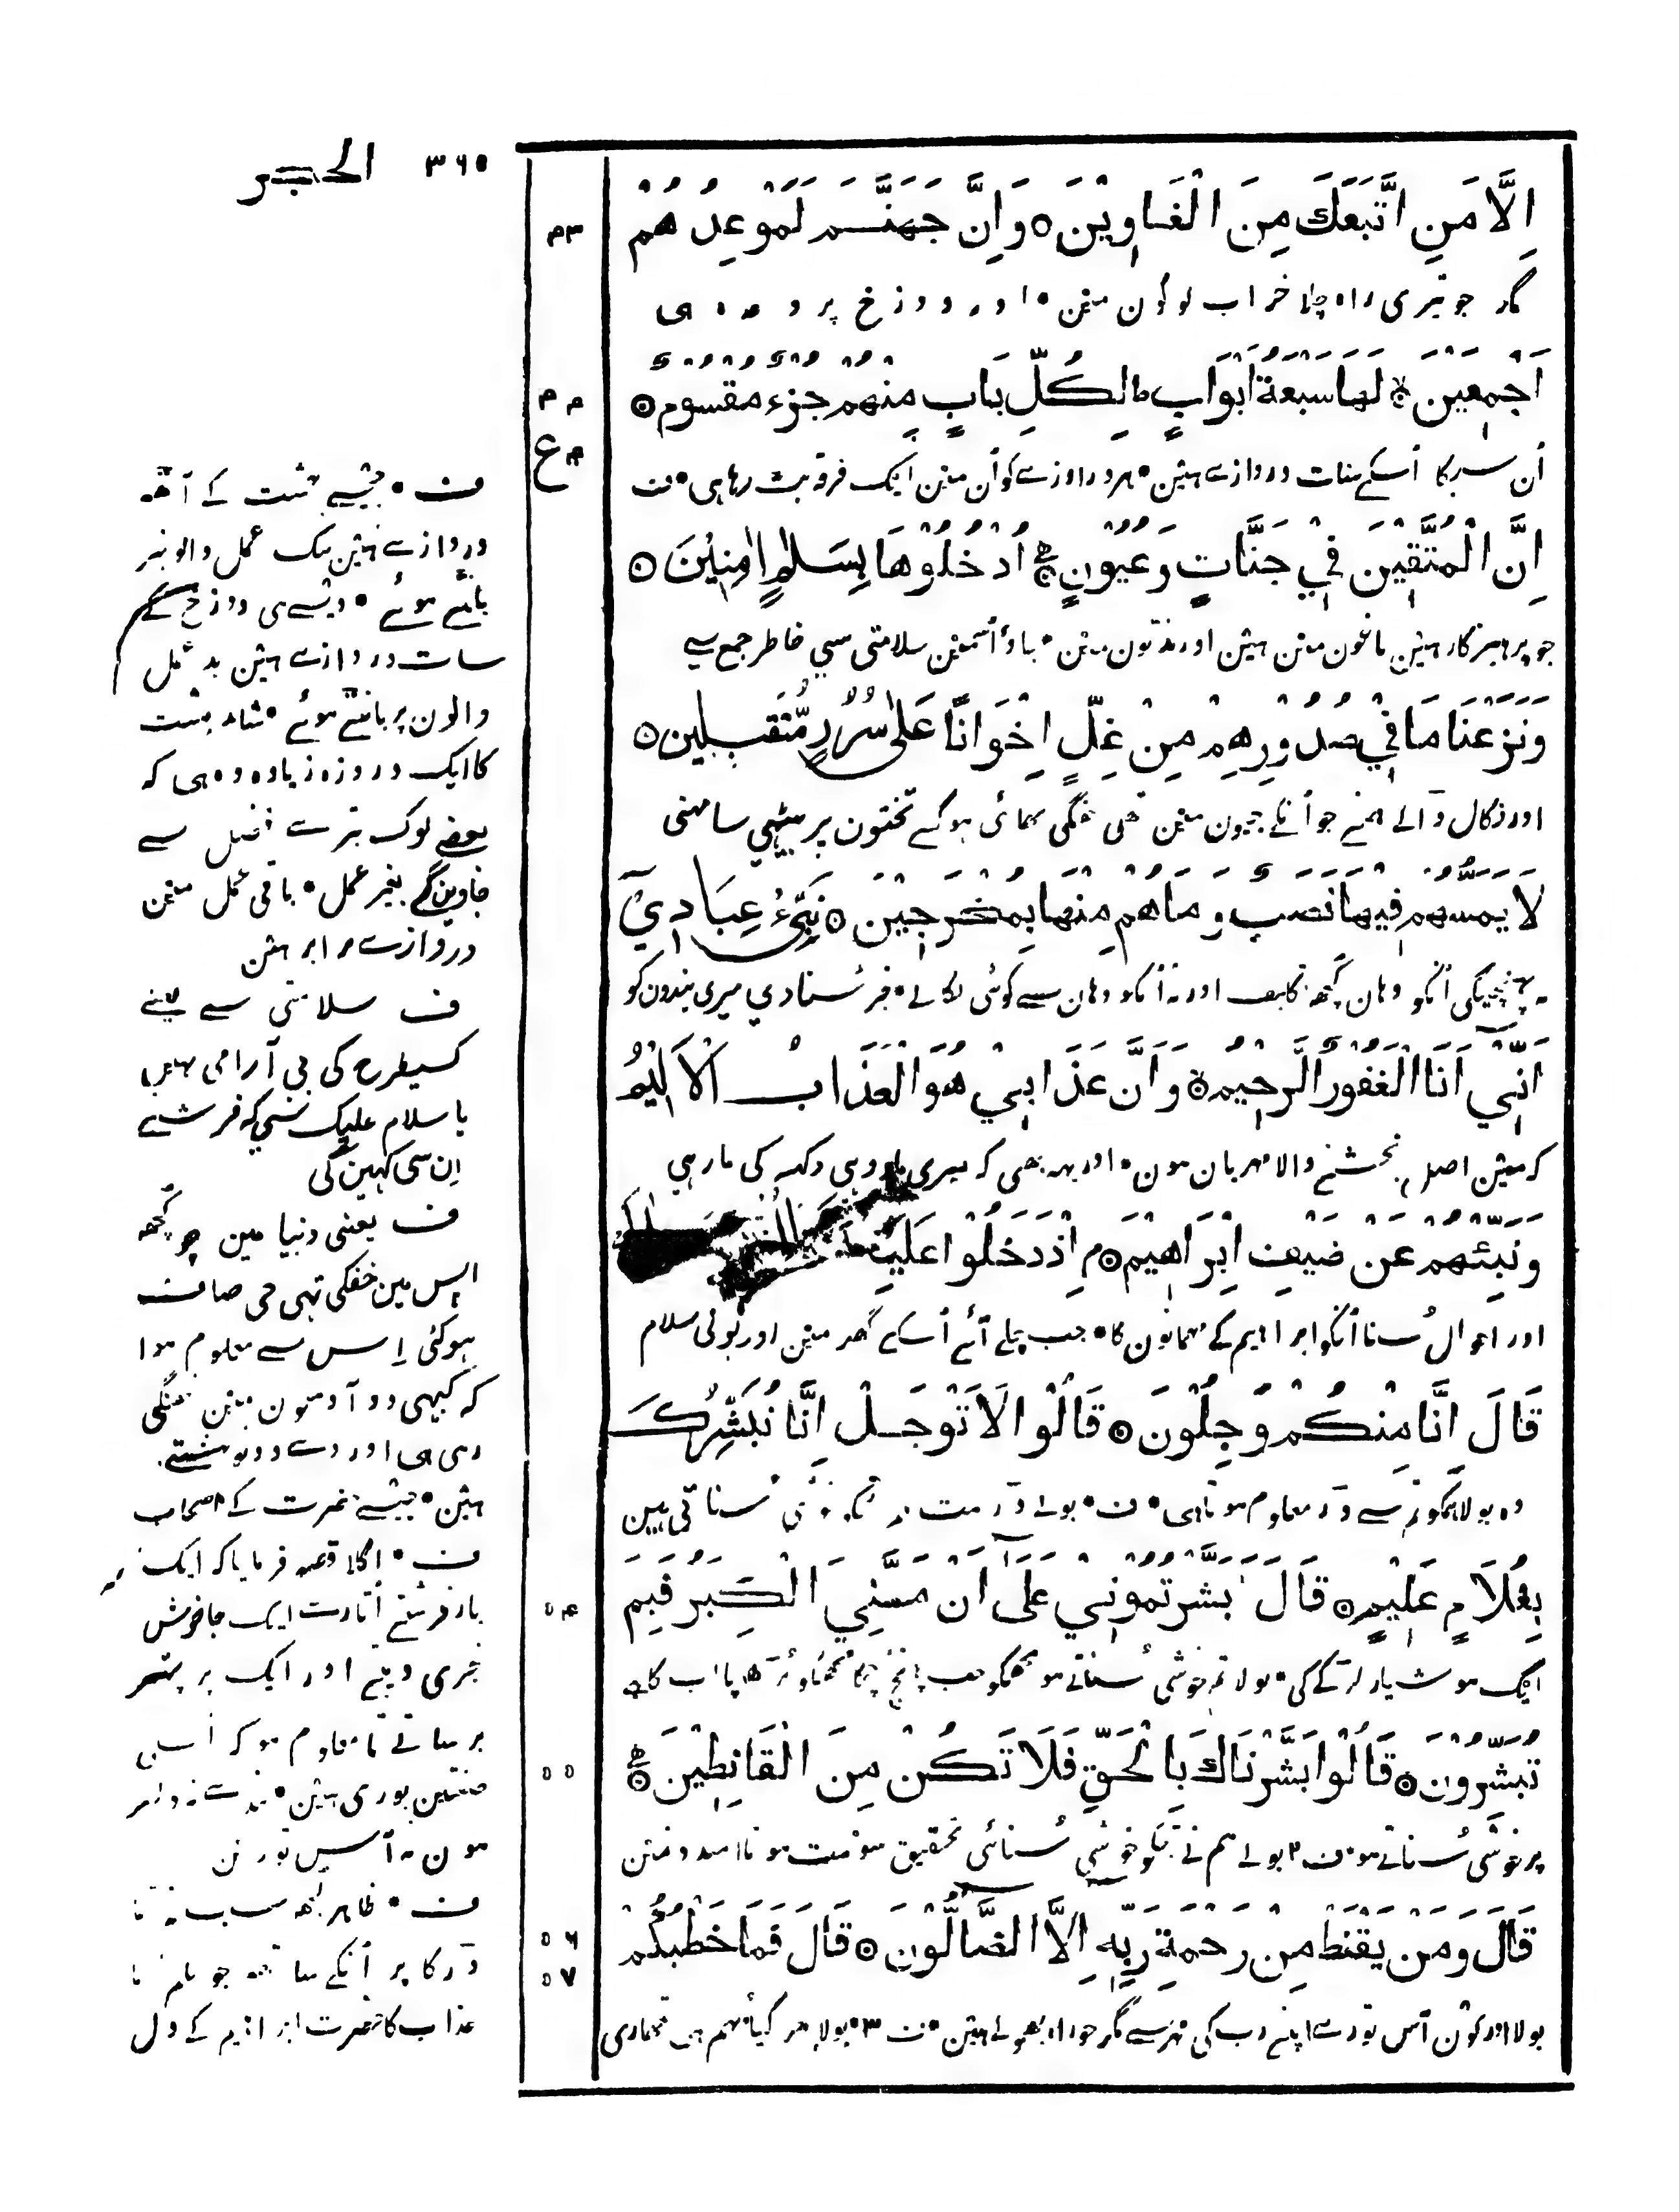 ٣٦٥ الحجر
اِلَّا مَنِ اتَّبَعَكَ مِنَ الْغَاوِيْنَ ٥ وَاِنَّ جَهَنَّمَ لَمَوْعِدُهُمْ
٤٣
مگر جو تیری راہ چلا خراب لوگون مین • اور دوزخ پر وعدہ ہی
اَجْمَعِيْنَ ۙ لَهَا سَبْعَةُ اَبْوَابٍ ط لِكُلِّ بَابٍ مِنْهُمْ جُزْءٌ مَقْسُوْمٌ ۝
٤٤
ع ٤
اُن سبکا اُسکے سات دروازے ہین • ہر دروازے کو اُن مین ایک فرقہ بٹ رہا ہی • ف
اِنَّ الْمُتَّقِيْنَ فِيْ جَنَّاتٍ وَعُيُوْنٍ ۝ اُدْخُلُوْهَا بِسَلٰمٍ اٰمِنِيْنَ ۝
جو پرہیزگار ہین باغون مین ہین اور ندیون مین • جاؤ اُسمین سلامتی سی خاطر جمع سے
وَنَزَعْنَا مَا فِيْ صُدُوْرِهِمْ مِنْ غِلٍّ اِخْوَانًا عَلٰى سُرُرٍ مُّتَقٰبِلِيْنَ ۝
اور نکال ڈالے ہمنے جو اُنکے جیون مین تھی خفگی بھائی ہوگئے تختون پر بیٹھی سامھنی
لَا يَمَسُّهُمْ فِيْهَا نَصَبٌ وَمَا هُمْ مِنْهَا بِمُخْرَجِيْنَ ۝ نَبِّئْ عِبَادِيْٓ
نہ پہنچیگی اُنکو وہان کچھ تکلیف اور نہ اُنکو وہان سے کوئی نکالے • خبر سنادی میری بندون کو
اَنِّيْٓ اَنَا الْغَفُوْرُ الرَّحِيْمُ ۝ وَاَنَّ عَذَابِيْ هُوَ الْعَذَابُ الْاَلِيْمُ
کہ مین اصل بخشنے والا مہربان ہون • اور یہہ بھی کہ میری مار وہی دکھہ کی مار ہی
وَنَبِّئْهُمْ عَنْ ضَيْفِ اِبْرَاهِيْمَ ۝ م اِذْ دَخَلُوْا عَلَيْهِ
اور احوال سنا اُنکو ابراہیم کے مہمانون کا • جب چلے آئے اُسکے گھر مین اور بولی سلام
قَالَ اِنَّا مِنْكُمْ وَجِلُوْنَ ۝ قَالُوْا لَا تَوْجَلْ اِنَّا نُبَشِّرُكَ
وہ بولا ہمکو تم سے ڈر معلوم ہوتا ہی • ف • بولے ڈر مت سناتی ہین
بِغُلَامٍ عَلِيْمٍ ۝ قَالَ اَبَشَّرْتُمُوْنِيْ عَلٰٓى اَنْ مَسَّنِيَ الْكِبَرُ فَبِمَ
٥٤
ایک ہوشیار لڑکے کی • بولا تم خوشی سناتے ہو مجھکو جب پہنچ چکا مجھکو بڑھاپا اب کاہے
تُبَشِّرُوْنَ ۝ قَالُوْا بَشَّرْنَاكَ بِالْحَقِّ فَلَا تَكُنْ مِنَ الْقَانِطِيْنَ ۝
٥٥
پر خوشی سناتے ہو • ف ٢ بولے ہم نے تجکو خوشی سنائی تحقیق سو مت ہو ناامیدون مین
قَالَ وَمَنْ يَقْنَطُ مِنْ رَحْمَةِ رَبِّهٖ اِلَّا الضَّالُّوْنَ ۝ قَالَ فَمَا خَطْبُكُمْ
٥٦
٥٧
بولا اور کون آس توڑے اپنے رب کی مہر سے مگر جو راہ بھولے ہین • ف ٣ • بولا پھر کیا مہم ہی تمہاری
ف • جیسے بہشت کے آٹھ
دروازے ہین نیک عمل والونپر
بانٹے ہوئے • ویسے ہی دوزخ کے
سات دروازے ہین بد عمل
والون پر بانٹے ہوئے • شاید بہشت
کا ایک دروازہ زیادہ وہ ہی کہ
بعضے لوگ نرے فضل سے
جاوینگے بغیر عمل • باقی عمل مین
دروازے برابر ہین
ف سلامتی سے یعنے
کسیطرح کی بی آرامی نہین
یا سلام علیک سی کہ فرشتے
اِن سی کہین گی
ف یعنی دنیا مین جو کچھ
اپس مین خفگی تہی جی صاف
ہوگئی اِس سے معلوم ہوا
کہ کبہی دو آدمیون مین خفگی
رہی ہی اور دے دونو بہشتی
ہین • جیسے حضرت کے اصحاب
ف • اگلا قصہ فرمایا کہ ایک
بار فرشتے اُتارے ایک جا خوش
خبری دیتے اور ایک پر پتھر
برساتے تا معلوم ہو کہ اسکی
صفتین پوری ہین • بندے نہ دلیر
ہون نہ آس توڑین
ف • ظاہر کچھہ سبب نہ تھا
ڈر کا پر اُنکے ساتھ جو تھا
عذاب کا حضرت ابراہیم کے دل